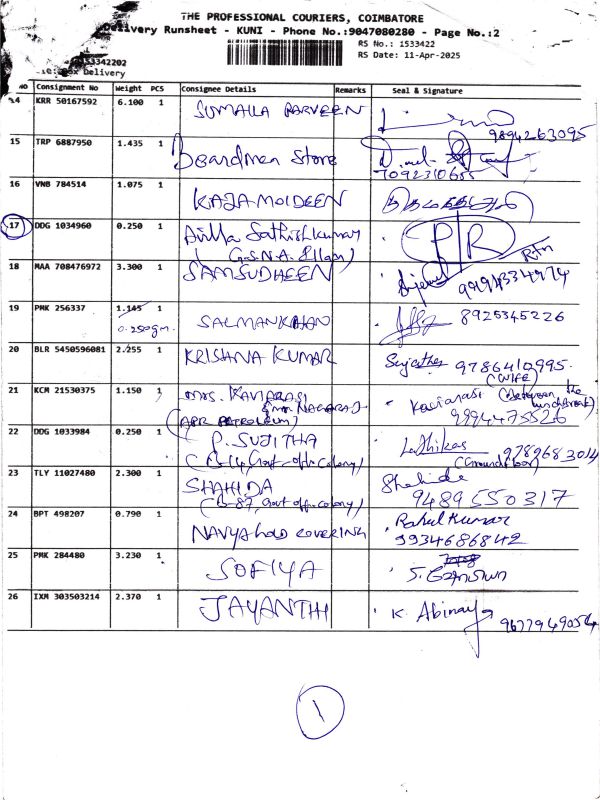 THE PROFESSIONAL COURIERS, COIMBATORE
Delivery Runsheet - KUNI - Phone No.:9047080280 - Page No.:2
RS No.: 1533422
RS Date: 11-Apr-2025
Delivery
NO Consignment No Weight PCS Consignee Details Remarks Seal & Signature
14 KRR 50167592 6.100 1 SUMAILA PARVEEN
9894263095
15 TRP 6887950 1.435 1 Boardmen Store
7092310655
16 VNB 784514 1.075 1 KAJAMOIDEEN
17 DDG 1034960 0.250 1 Sathishkumar
(G.S.N.A. Illam)
18 MAA 708476972 3.300 1 SAMSUDHEEN
19 PMK 256337 1.145 1 SALMANKHAN 8925345226
0.250gm.
20 BLR 5450596081 2.255 1 KRISHNA KUMAR Sujatha 9786410995
(WIFE)
21 KCM 21530375 1.150 1 Mrs. KAVIARASI Kaviarasi (Between the lunch Break)
& Mr. NAGARAJ
(APR PETROLEUM) 9994475526
22 DDG 1033984 0.250 1 P. SUJITHA 9789683014
(B-14, Govt-off-colony) (Ground floor)
23 TLY 11027480 2.300 1 SHAHIDA Shahida
(B-87, Govt off-colony) 9489550317
24 BPT 498207 0.790 1 NAVYA GOLD COVERING Rahul Kumar
9934686842
25 PMK 284480 3.230 1 SOFIYA
26 IXM 303503214 2.370 1 JAYANTHI K. Abinaya
9677949054
1